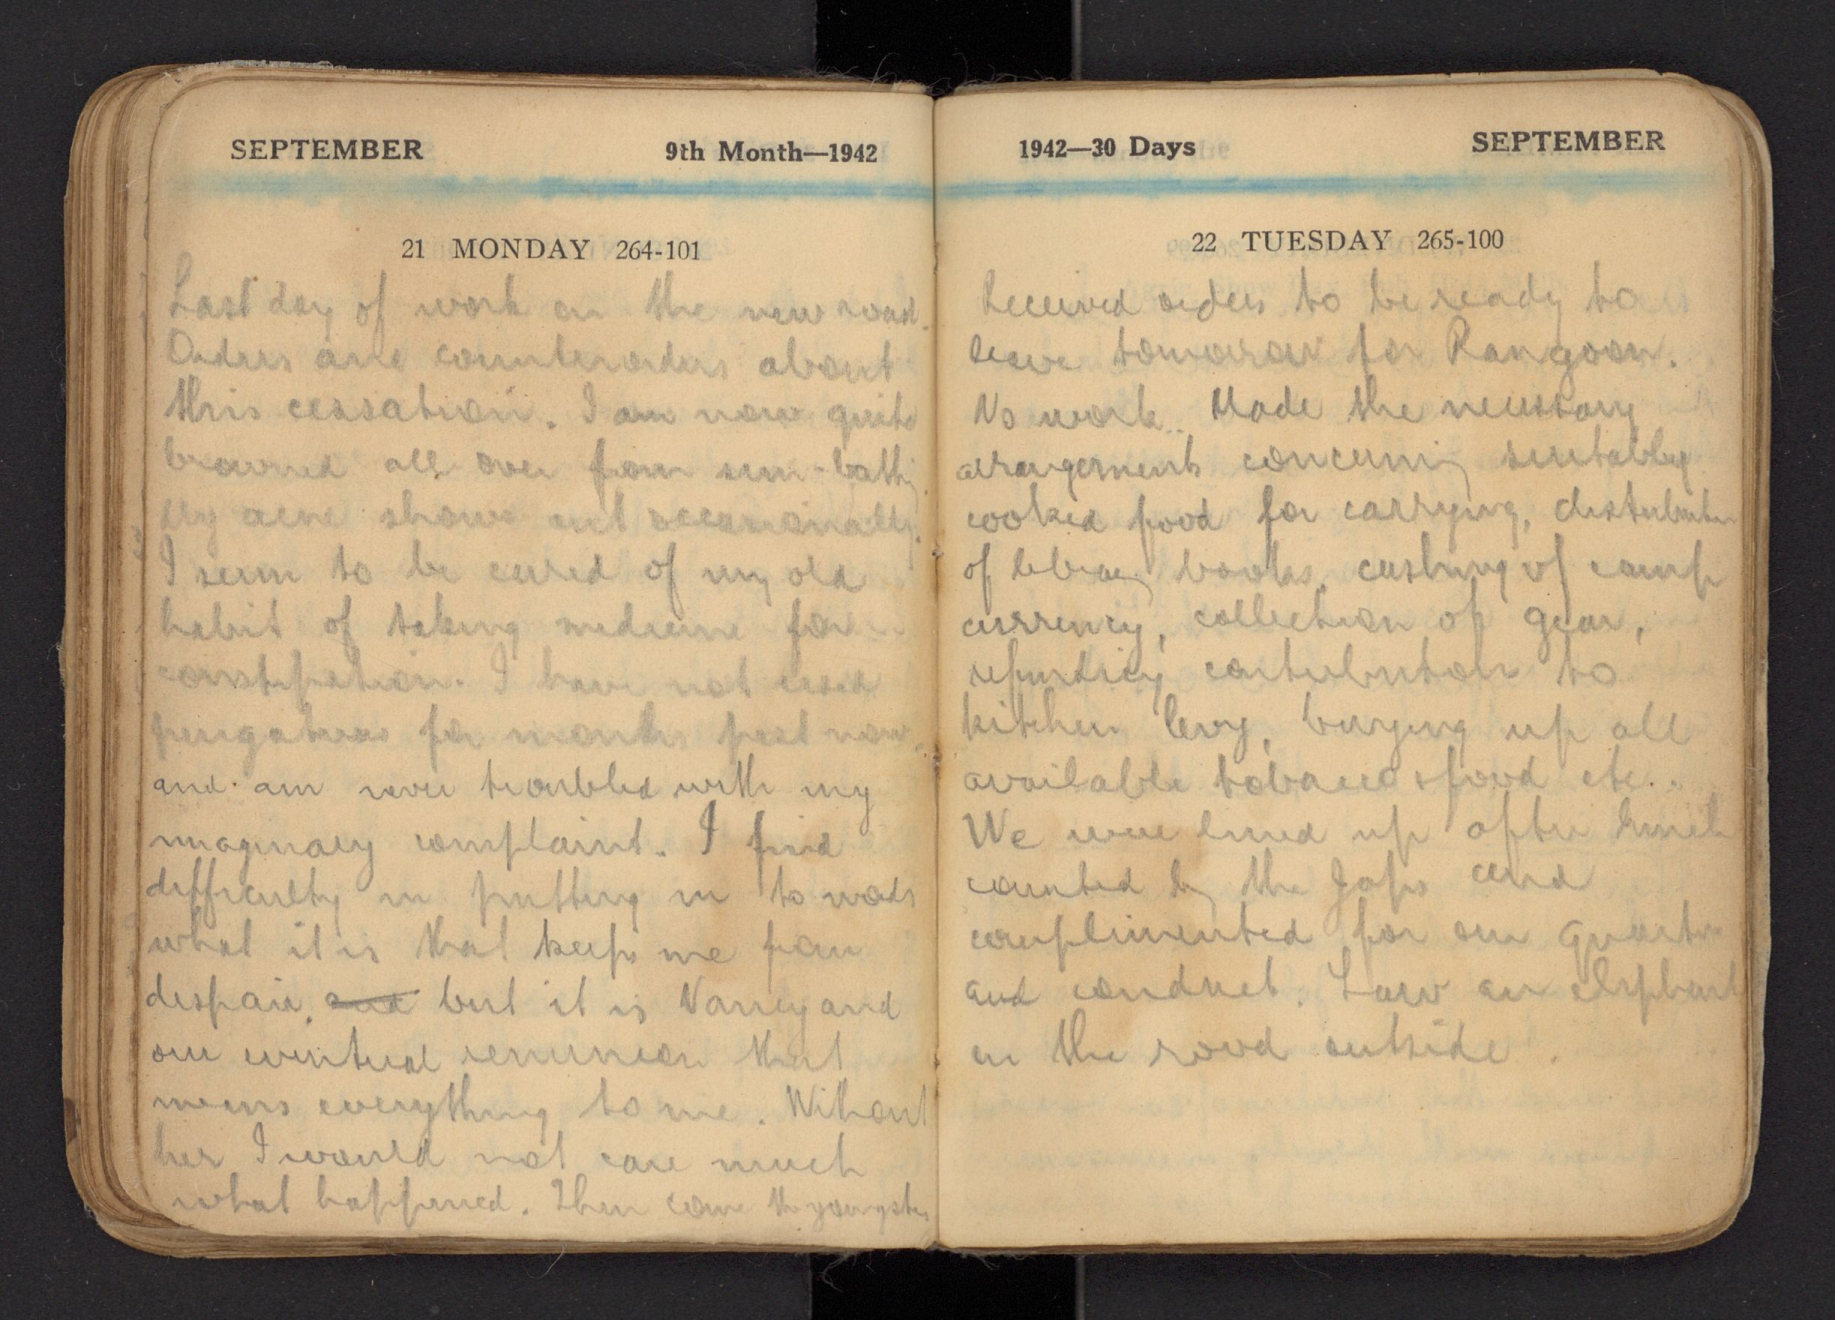 SEPTEMBER 9th Month—1942
21 MONDAY 264-101
Last day of work on the new road.
Orders and counterorders about
this cessation. I am now quite
browned all over from sun-bathing
My acne shows out occasionally.
I seem to be cured of my old
habit of taking medicine for
constipation. I have not used
purgatives for months past now
and am never troubled with my
imaginary complaint. I find
difficulty in putting in to words
what it is that keeps me from
despair, and but it is Nancy and
our eventual reunion that
means everything to me. Without
her I would not care much
what happened. Then come the youngsters
1942—30 Days SEPTEMBER
22 TUESDAY 265-100
Received orders to be ready to
leave tomorrow for Rangoon.
No work. Made the necessary
arrangements concerning suitably
cooked food for carrying, distribution
of library books, cashing of camp
currency, collection of gear,
refunding contribution to
kitchen levy, buying up all
available tobacco & food etc..
We were lined up after lunch
counted by the Japs and
complimented for our quarters
and conduct. Saw an elephant
on the road outside.